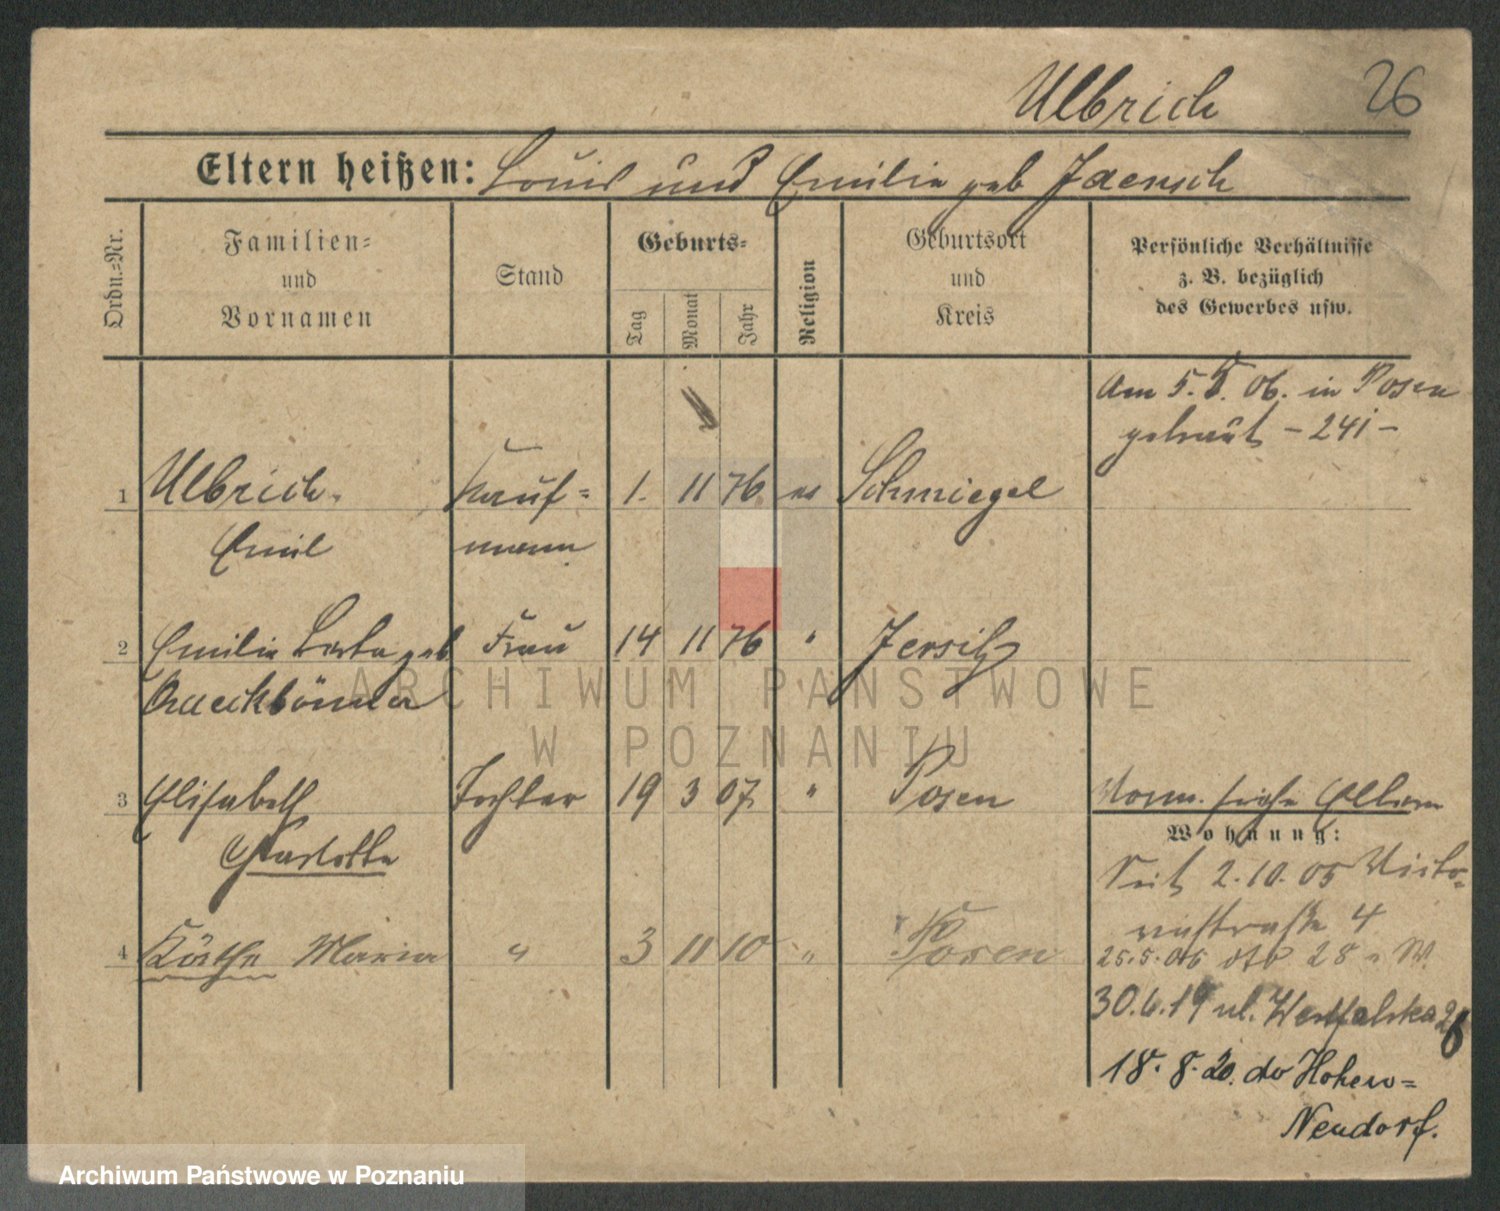 Ulbrich 26
Eltern heißen: Louis und Emilie geb Jaensch
Ordn.=Nr.
Familien=
und
Vornamen
Stand
Geburts=
Tag
Monat
Jahr
Religion
Geburtsort
und
Kreis
Persönliche Verhältnisse
z. B. bezüglich
des Gewerbes usw.
Am 5.5.06. in Posen
getraut - 241 -
1 Ulbrich Kauf= 1. 11 76 ev Schmiegel
Emil mann
2 Emilie Berta geb Frau 14 11 76 " Jersitz
3 Elisabeth Tochter 19 3 07 " Posen
Charlotte
Norm. siehe Eltern
Wohnung:
Seit 2.10.05 Victo=
riastraße 4
4 Käthe Maria " 3 11 10 " Posen
25.5.06 28
30.6.19 ul. Westfalska
18.8.20. do Hohen=
Neudorf.
ARCHIWUM PAŃSTWOWE
W POZNANIU
Archiwum Państwowe w Poznaniu